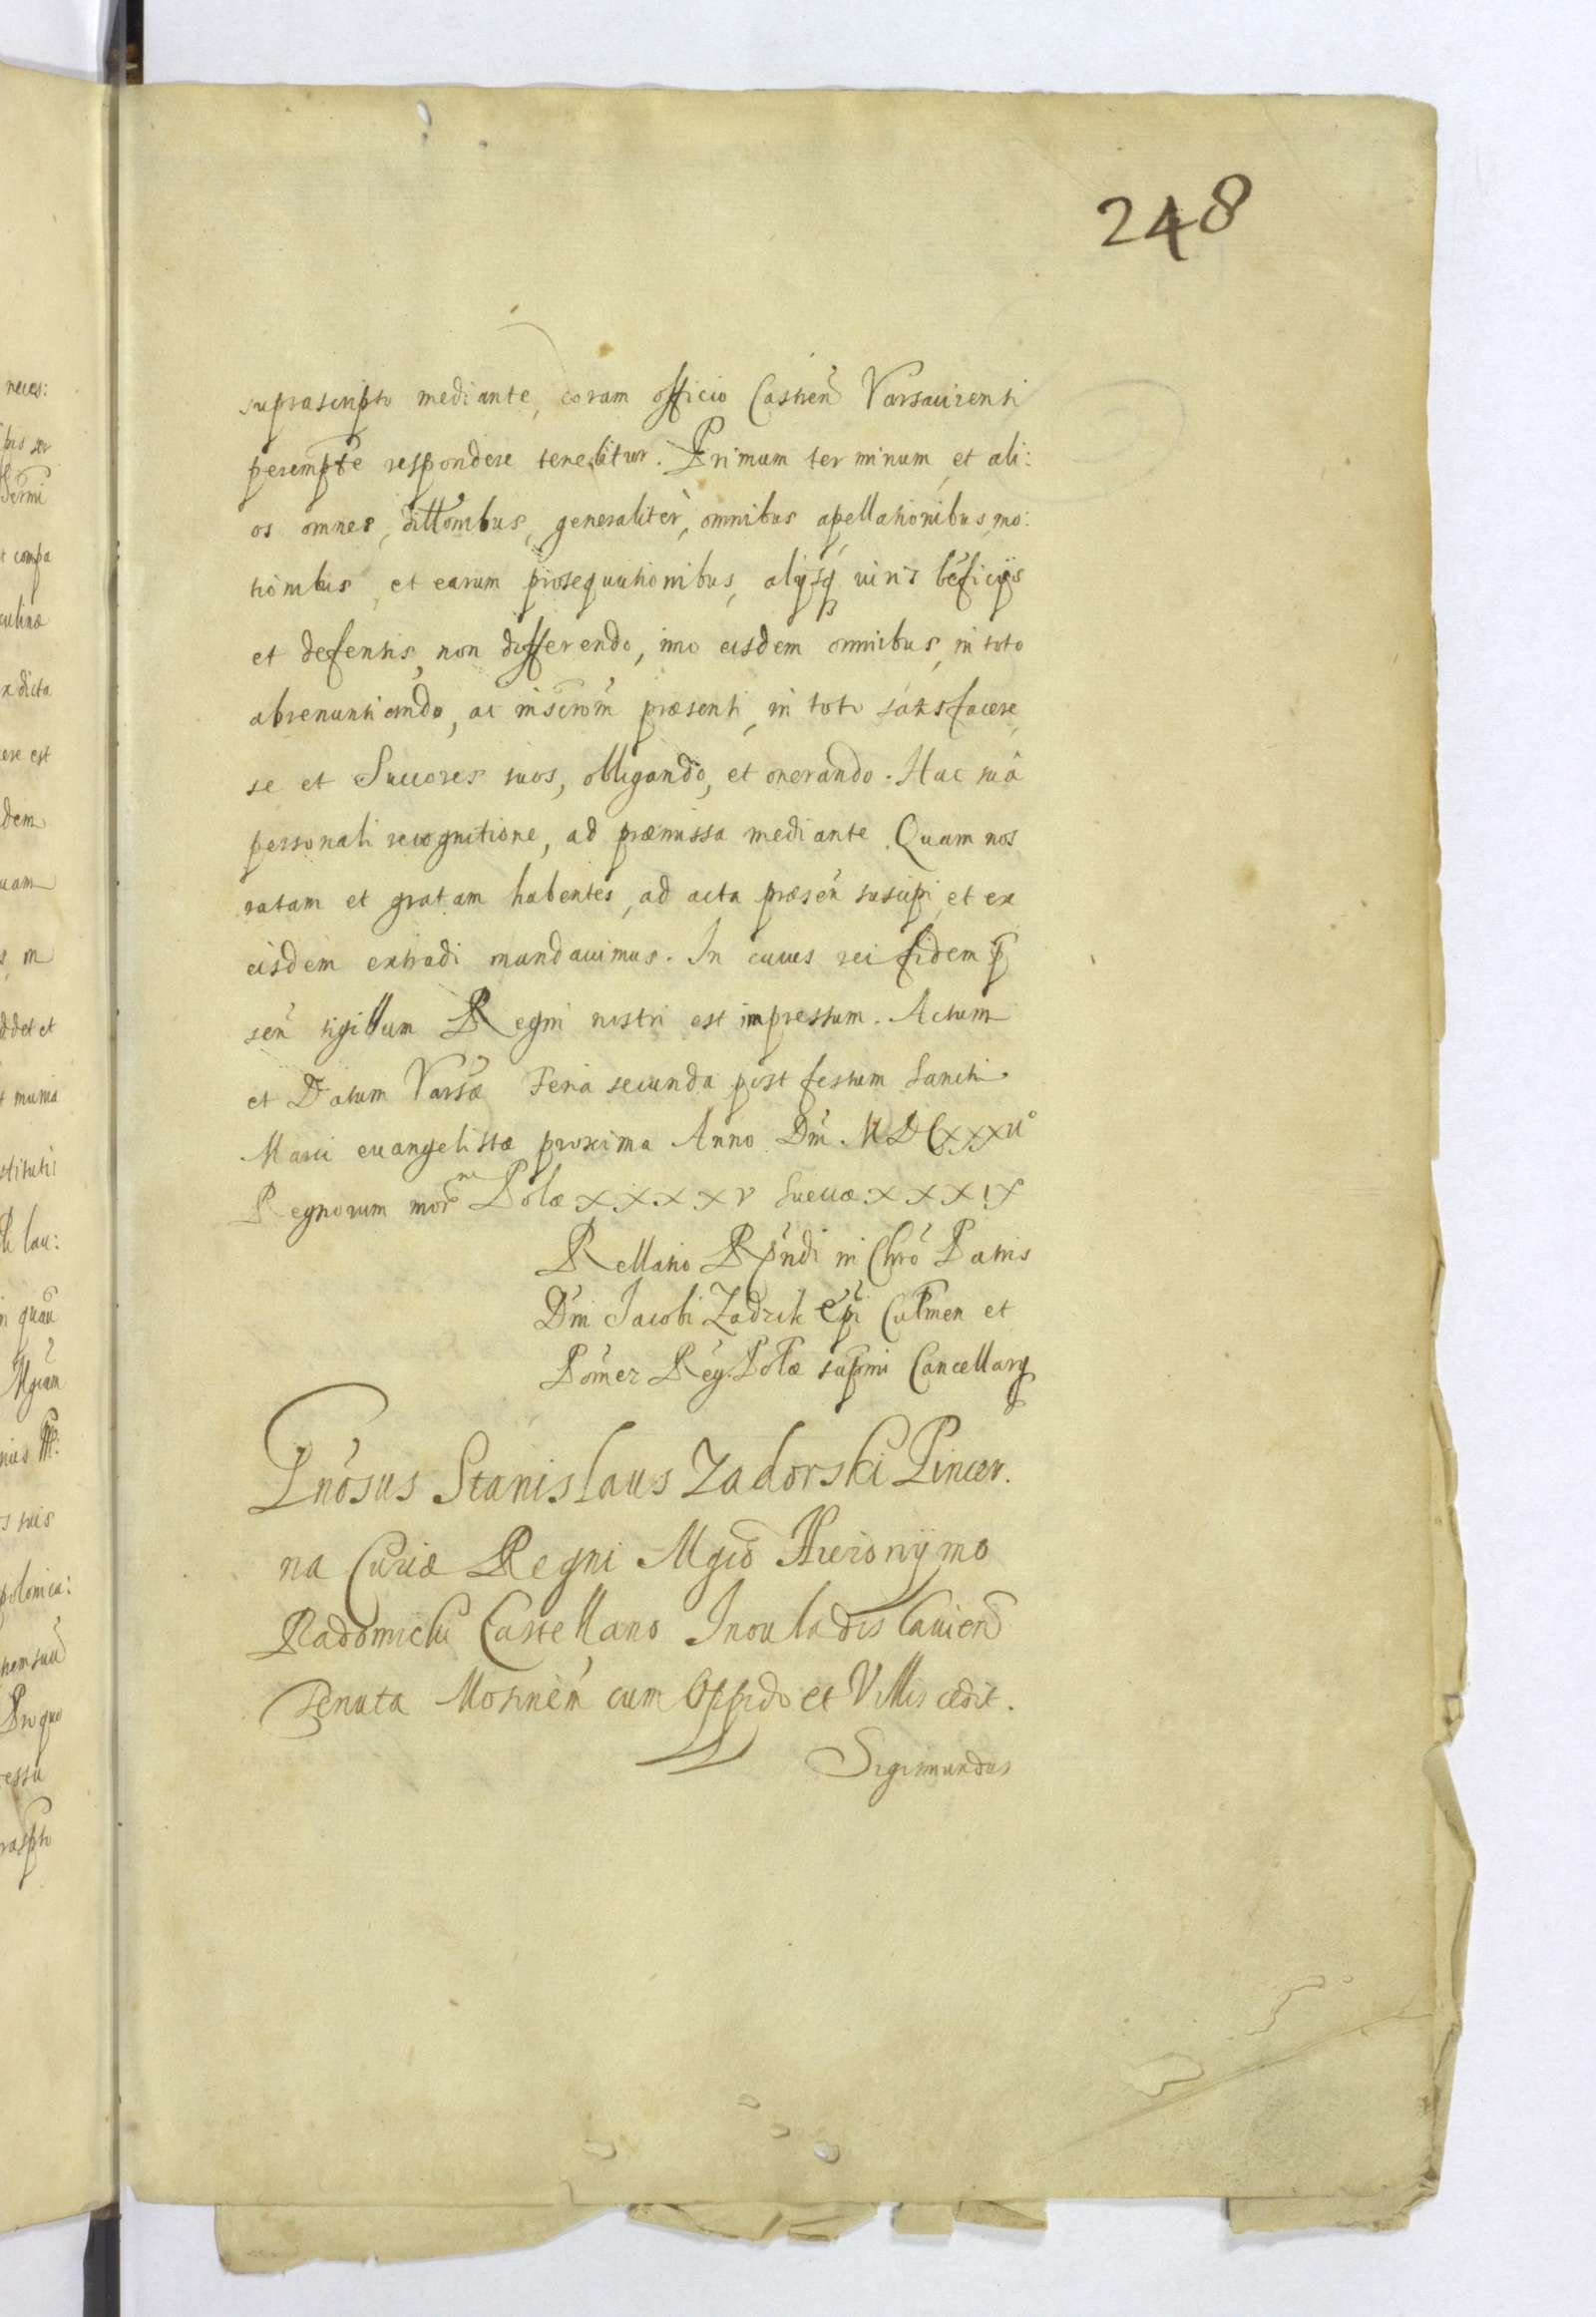 248
suprascripto mediante, coram officio Castren̄ Varsauiensi
perempt̃e respondere tenebitur. Primum terminum, et ali:
os omnes, dill̃ombus, generalitèr, omnibus apellationibus, mo:
tionibus, et earum prosequutionibus, alijsq́ beñficijs
et defensis, non differendo, imo eisdem omnibus, in toto
abrenuntiando, ac inscrōm̄ præsenti, in toto satisfacere,
se et Succores suos, obligando, et onerando. Hac suâ
personali recognitione, ad præmissa mediante. Quam nos
ratam et gratam habentes, ad acta præsen̄ suscipi, et ex
eisdem extradi mandauimus. In cuius rei fidem p̄
sen̄ sigillum Regni nostri est impressum. Actum
et Datum Varsæ Feria secunda post festum Sancti
Marci euangelistæ proxima Anno Dn̄i. MDCxxxii°
Regnorum nror̃ Polæ xxxxv Sueuæ xxxix
Rellatio Rn̄di in Chrō Patris
Dn̄i Jacobi Zadzik Ep̄i Culmen et
Pomer Reg. Polæ supmi Cancellarij
Gn̄osus Stanislaus Zadorski Pincer.
na Curiæ Regni Mgcō Hieronymo
Radomicki Castellano Inouladislauien̄
Tenuta Mosinen̄ cum Oppido et Villis cedit.
Sigismundus